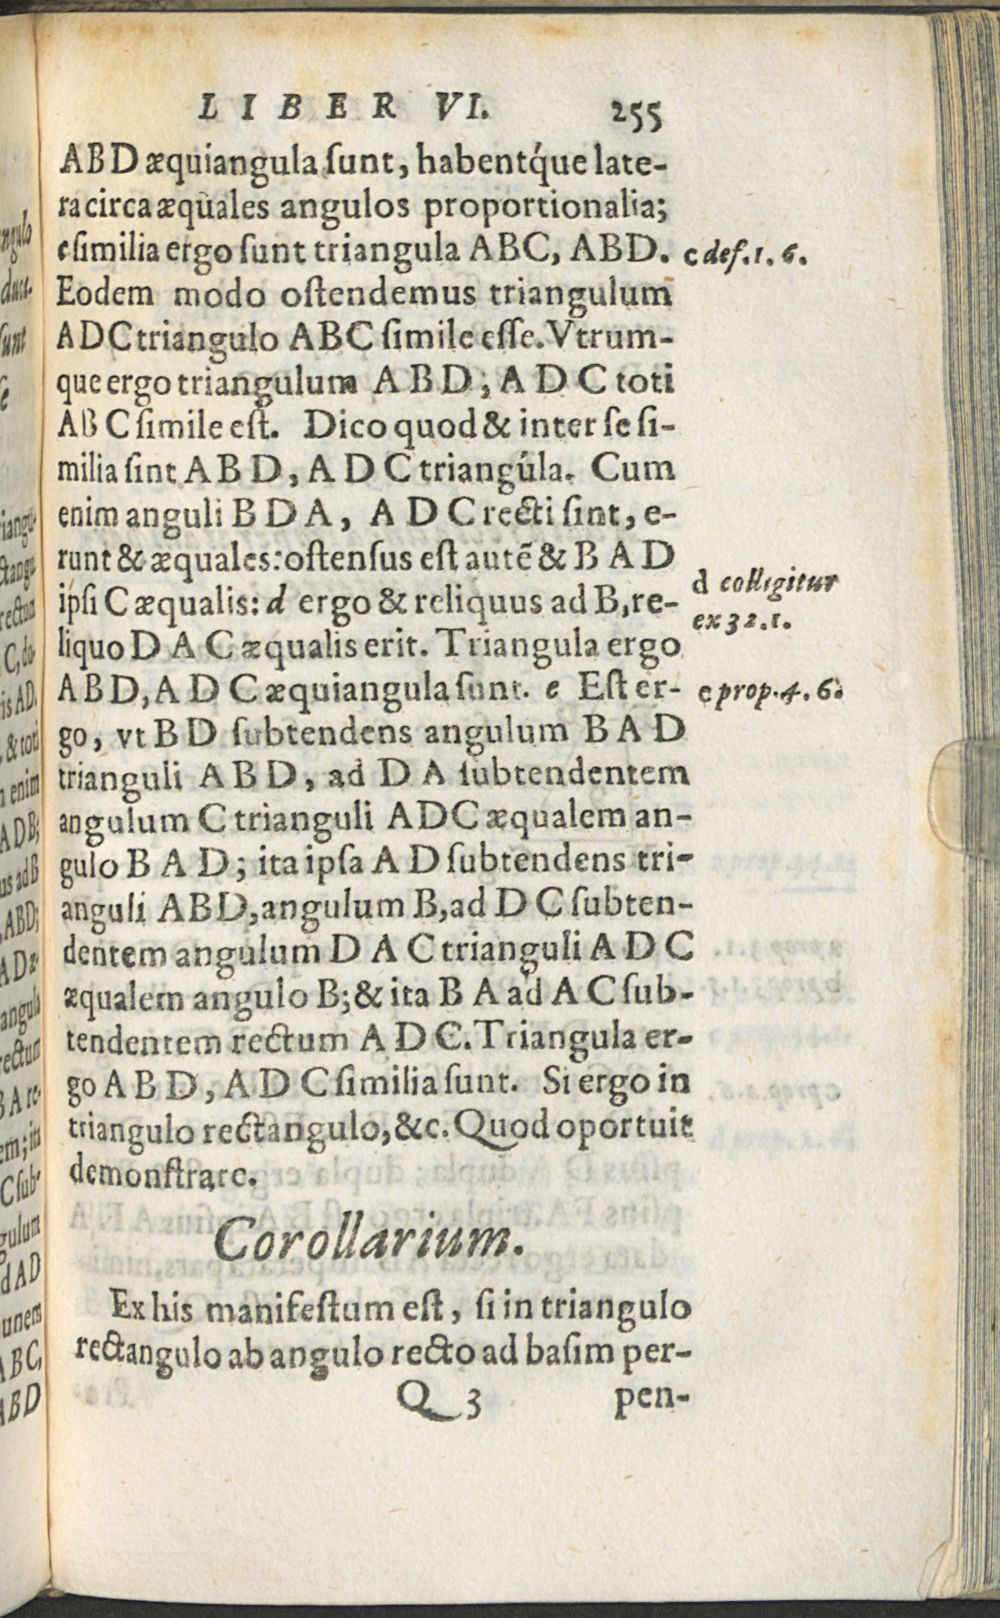 LIBER VI. 255
ABD æquiangula ſunt, habentq́ue late-
ra circa æquales angulos proportionalia;
c ſimilia ergo ſunt triangula ABC, ABD. c def. 1. 6.
Eodem modo oſtendemus triangulum
ADC triangulo ABC ſimile eſſe. Vtrum-
que ergo triangulum ABD; ADC toti
ABC ſimile eſt. Dico quod & inter ſe ſi-
milia ſint ABD, ADC triangúla. Cum
enim anguli BDA, ADC recti ſint, e-
runt & æquales: oſtenſus eſt autē & BAD
ipſi C æqualis: d ergo & reliquus ad B, re- d colligitur
liquo DAC æqualis erit. Triangula ergo ex 32. 1.
ABD, ADC æquiangula ſunt. e Eſt er- e prop. 4. 6.
go, vt BD ſubtendens angulum BAD
trianguli ABD, ad DA ſubtendentem
angulum C trianguli ADC æqualem an-
gulo BAD; ita ipſa AD ſubtendens tri-
anguli ABD, angulum B, ad DC ſubten-
dentem angulum DAC trianguli ADC
æqualem angulo B; & ita BA ad AC ſub-
tendentem rectum ADC. Triangula er-
go ABD, ADC ſimilia ſunt. Si ergo in
triangulo rectangulo, &c. Quod oportuit
demonſtrare.
Corollarium.
Ex his manifeſtum eſt, ſi in triangulo
rectangulo ab angulo recto ad baſim per-
Q 3 pen-